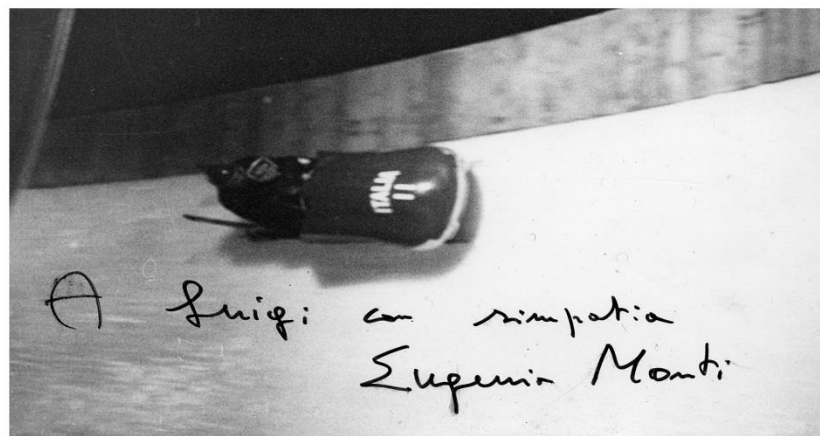 ITALIA
II
A Luigi con simpatia
Eugenio Monti